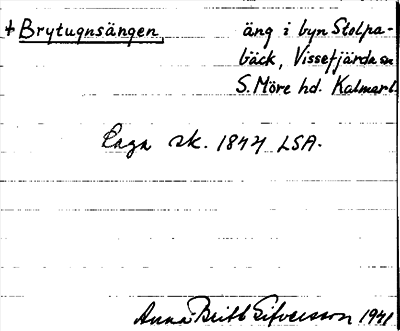 + Brytugnsängen, äng i byn Stolpa-
bäck, Vissefjärda sn
S. Möre hd. Kalmar l.
Laga sk. 1844 LSA.
Anna Britt Sifversson 1941